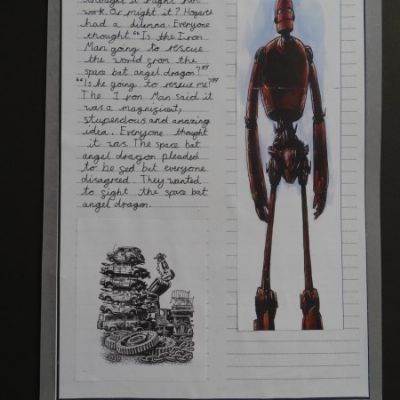 thought it might not
work. Or might it? Hogarth
had a dilema. Everyone
thought "Is the Iron
Man going to rescue
the world from the
space bat angel dragon?"
"Is he going to rescue me?"
The Iron Man said it
was a magnificent,
stupendous and amazing
idea. Everyone thought
it was. The space bat
angel dragon pleaded
to be fed but everyone
disagreed. They wanted
to fight the space bat
angel dragon.